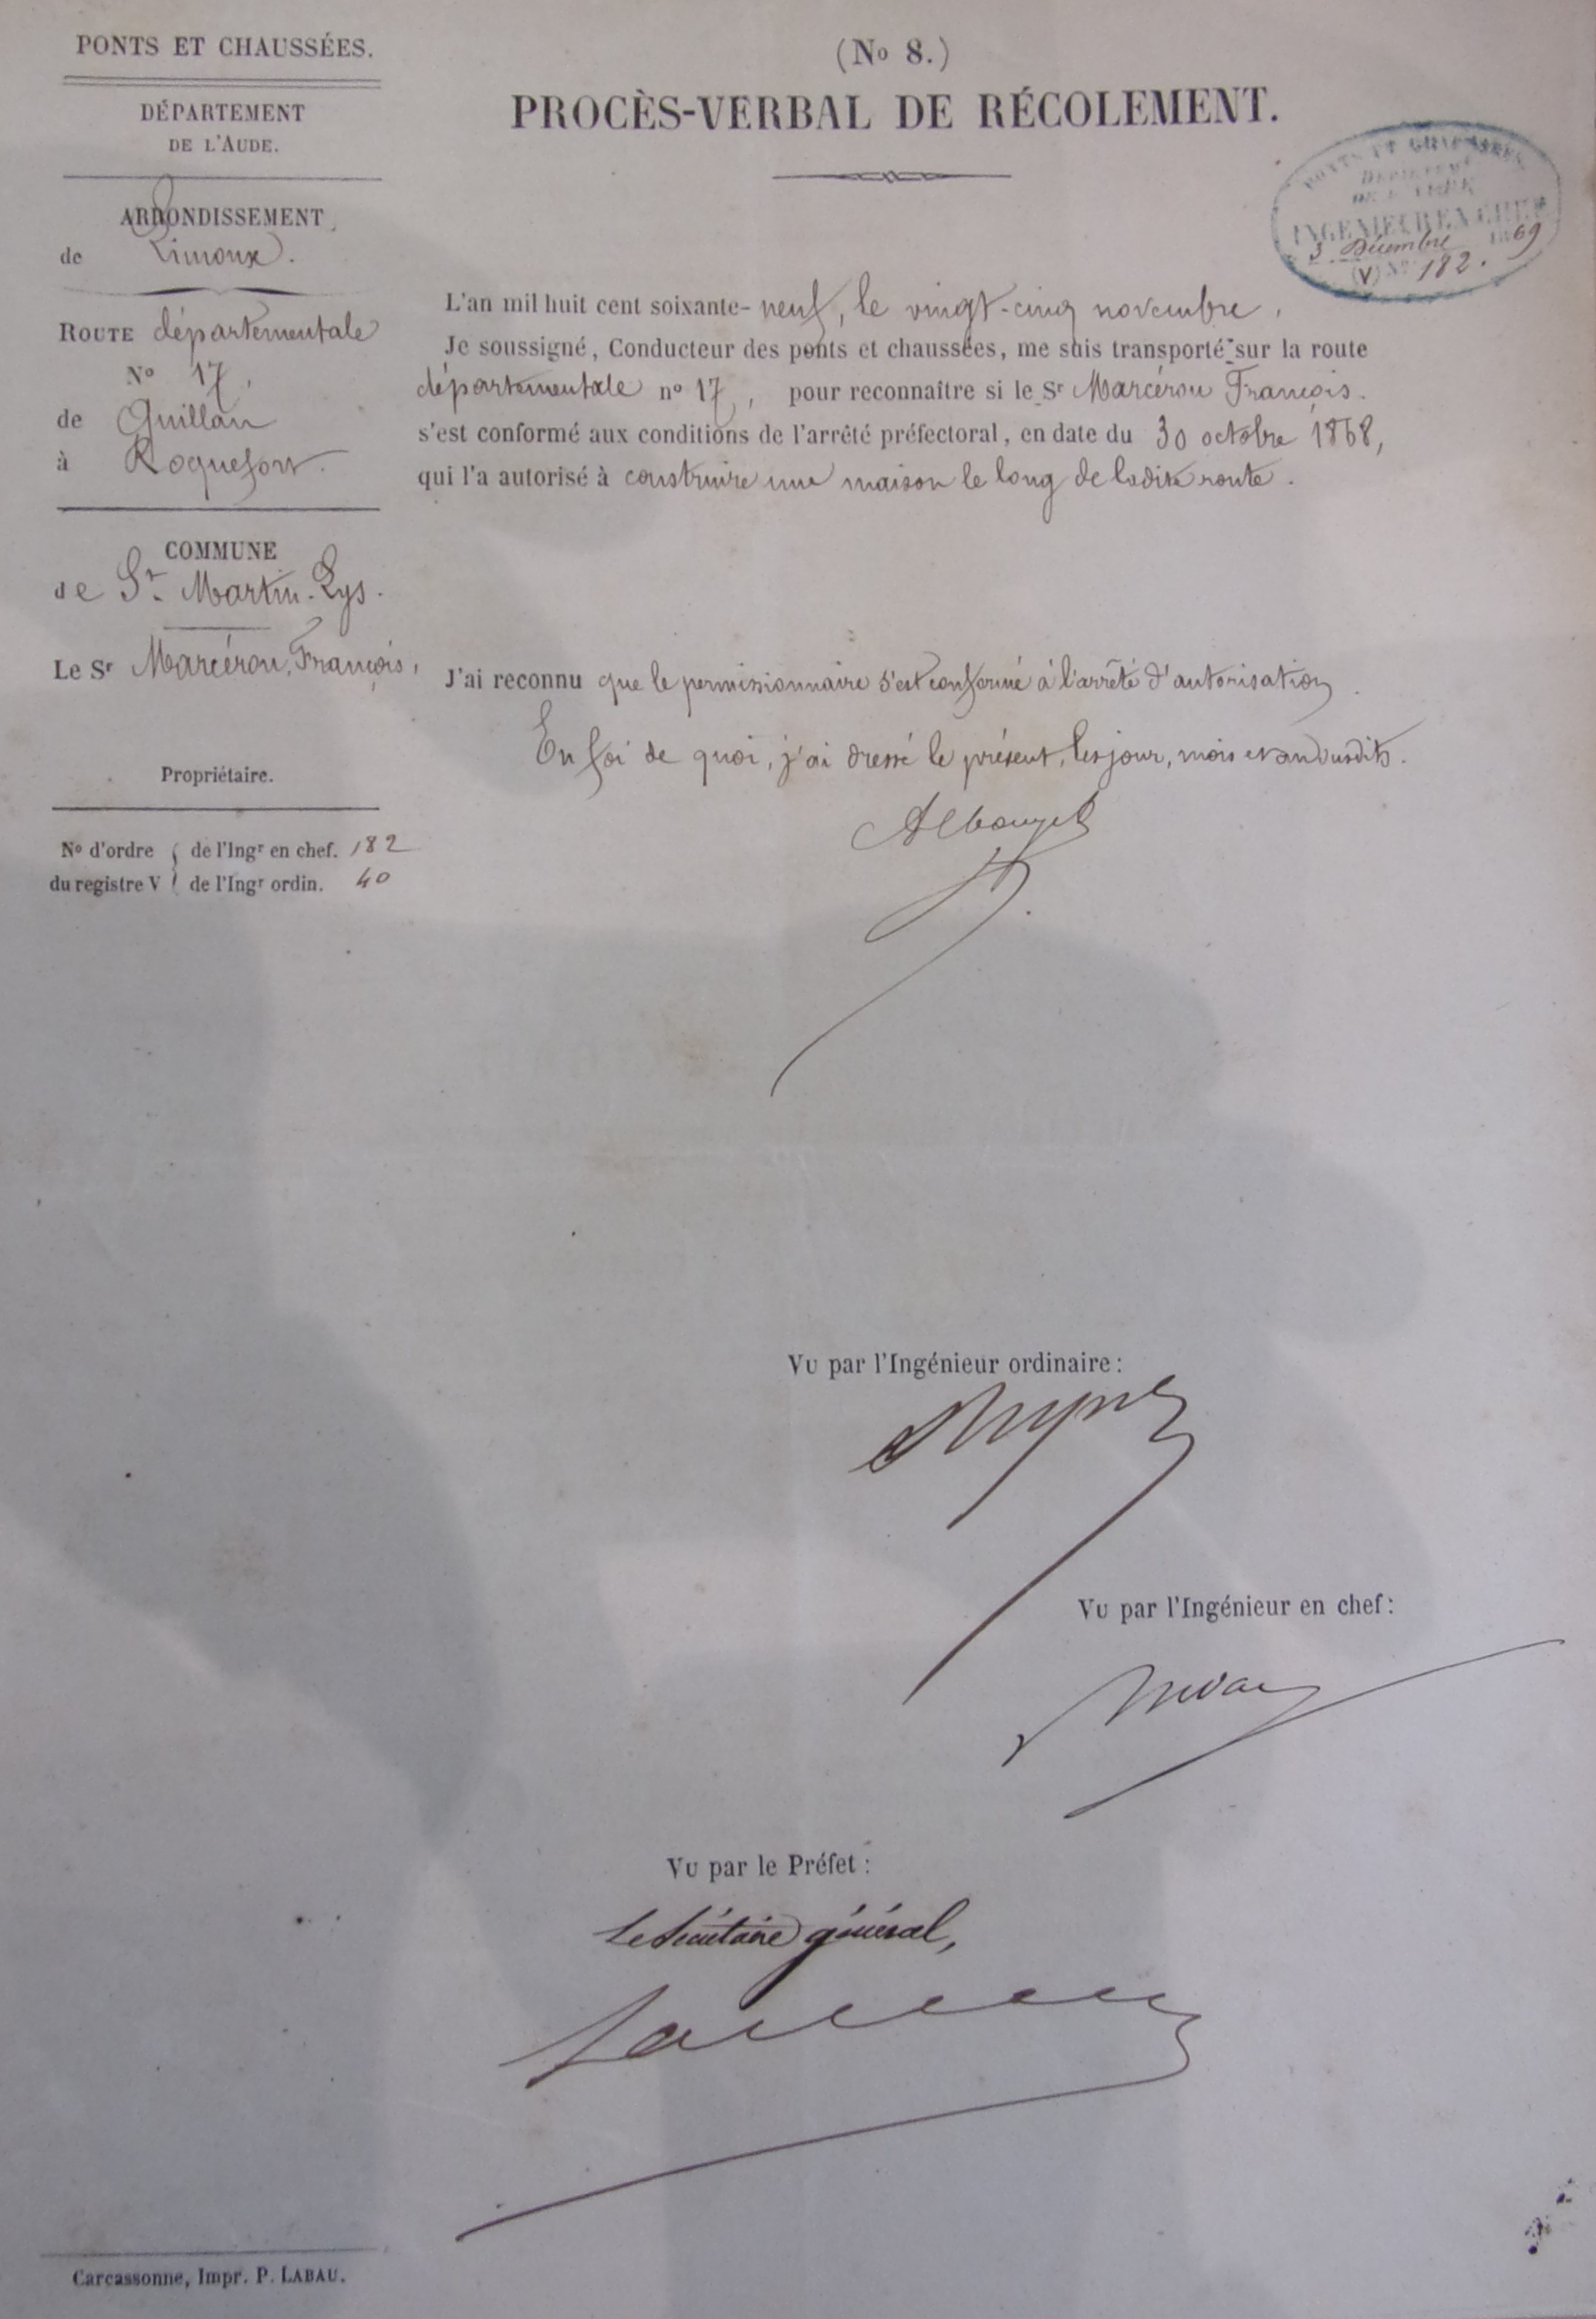 PONTS ET CHAUSSÉES.
DÉPARTEMENT
DE L'AUDE.
ARRONDISSEMENT
de Limoux.
ROUTE départementale
No 17,
de Quillan
à Roquefort.
COMMUNE
de St. Martin-Lys.
Le Sr Marcérou, François,
Propriétaire.
No d'ordre { de l'Ingr en chef. 182
du registre V { de l'Ingr ordin. 40
(No 8.)
PROCÈS-VERBAL DE RÉCOLEMENT.
PONTS ET CHAUSSÉES
DÉPARTEMT
DE L'AUDE
INGÉNIEUR EN CHEF
3 Décembre 1869
(V) No 182.
L'an mil huit cent soixante-neuf, le vingt-cinq novembre,
Je soussigné, Conducteur des ponts et chaussées, me suis transporté sur la route
départementale no 17, pour reconnaître si le Sr Marcérou François.
s'est conformé aux conditions de l'arrêté préfectoral, en date du 30 octobre 1868,
qui l'a autorisé à construire une maison le long de ladite route.
J'ai reconnu que le permissionnaire s'est conformé à l'arrêté d'autorisation.
En foi de quoi, j'ai dressé le présent, les jour, mois et an susdits.
Vu par l'Ingénieur ordinaire:
Vu par l'Ingénieur en chef:
Vu par le Préfet:
Le Secrétaire général,
Carcassonne, Impr. P. LABAU.